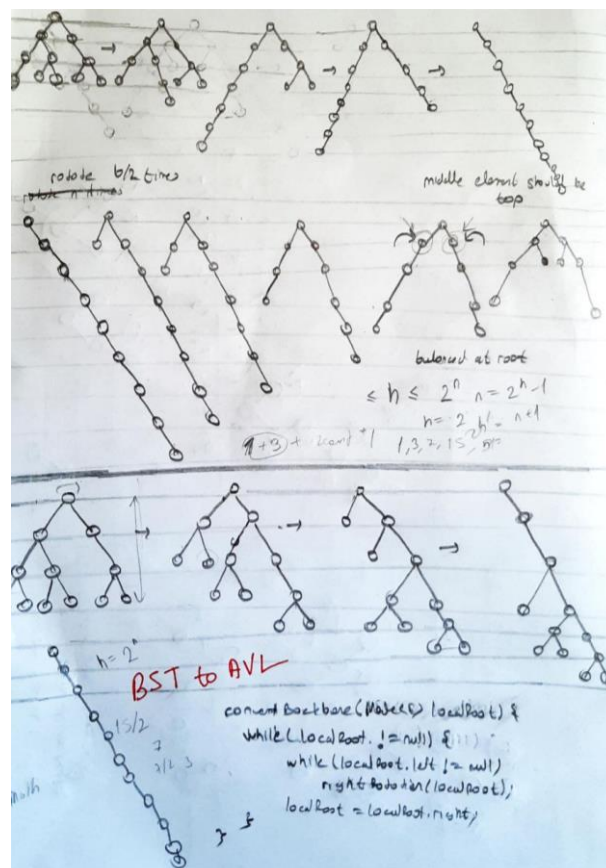 rotate b/2 times
rotate n times
middle element should be
top
balanced at root
≤ h ≤ 2^n n = 2^h - 1
1+3
n+1
h = 2
BST to AVL
15/2
convertBackbone(Node<E> localRoot) {
while(localRoot != null) {
while(localRoot.left != null)
rightRotation(localRoot);
localRoot = localRoot.right;
} }